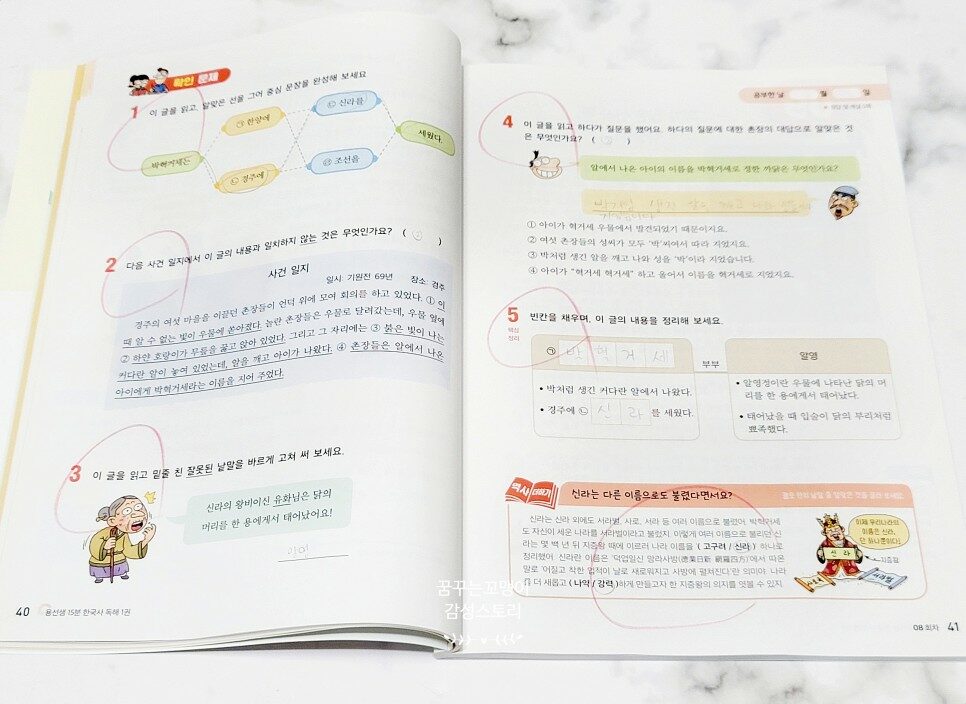 확인 문제
1 이 글을 읽고, 알맞은 선을 그어 중심 문장을 완성해 보세요
박혁거세는
㉠ 한양에
㉡ 경주에
㉢ 신라를
㉣ 조선을
세웠다.
2 다음 사건 일지에서 이 글의 내용과 일치하지 않는 것은 무엇인가요? ( ② )
사건 일지
일시: 기원전 69년 장소: 경주
경주의 여섯 마을을 이끌던 촌장들이 언덕 위에 모여 회의를 하고 있었다. ① 이
때 알 수 없는 빛이 우물에 쏟아졌다. 놀란 촌장들은 우물로 달려갔는데, 우물 옆에
② 하얀 호랑이가 무릎을 꿇고 앉아 있었다. 그리고 그 자리에는 ③ 붉은 빛이 나는
커다란 알이 놓여 있었는데, 알을 깨고 아이가 나왔다. ④ 촌장들은 알에서 나온
아이에게 박혁거세라는 이름을 지어 주었다.
3 이 글을 읽고 밑줄 친 잘못된 낱말을 바르게 고쳐 써 보세요.
신라의 왕비이신 유화님은 닭의
머리를 한 용에게서 태어났어요!
알영
40 용선생 15분 한국사 독해 1권
공부한 날 월 일
4 이 글을 읽고 하다가 질문을 했어요. 하다의 질문에 대한 촌장의 대답으로 알맞은 것
은 무엇인가요? ( ③ )
알에서 나온 아이의 이름을 박혁거세로 정한 까닭은 무엇인가요?
박처럼 생긴 알을 깨고 나와
① 아이가 혁거세 우물에서 발견되었기 때문이지요.
② 여섯 촌장들의 성씨가 모두 '박'씨여서 따라 지었지요.
③ 박처럼 생긴 알을 깨고 나와 성을 '박'이라 지었습니다.
④ 아이가 "혁거세 혁거세" 하고 울어서 이름을 혁거세로 지었지요.
5 빈칸을 채우며, 이 글의 내용을 정리해 보세요.
핵심
정리
㉠ 박 혁 거 세
• 박처럼 생긴 커다란 알에서 나왔다.
• 경주에 ㉡ 신 라 를 세웠다.
부부
알영
• 알영정이란 우물에 나타난 닭의 머
리를 한 용에게서 태어났다.
• 태어났을 때 입술이 닭의 부리처럼
뾰족했다.
역사 더하기 신라는 다른 이름으로도 불렸다면서요?
신라는 신라 외에도 서라벌, 사로, 서라 등 여러 이름으로 불렸어. 박혁거세
도 자신이 세운 나라를 서라벌이라고 불렀지. 이렇게 여러 이름으로 불리던 신
라는 몇 백 년 뒤 지증왕 때에 이르러 나라 이름을 ( 고구려 / 신라 ) 하나로
정리했어. 신라란 이름은 '덕업일신 망라사방(德業日新 網羅四方)'에서 따온
말로 '어질고 착한 업적이 날로 새로워지고 사방에 펼쳐진다'란 의미야. 나라
를 더 새롭고 ( 나약 / 강력 )하게 만들고자 한 지증왕의 의지를 엿볼 수 있지
이제 우리나라의
이름은 신라,
단 하나뿐이다!
지증왕
신라
사로
서라벌
08 회차 41
꿈꾸는꼬맹이
감성스토리